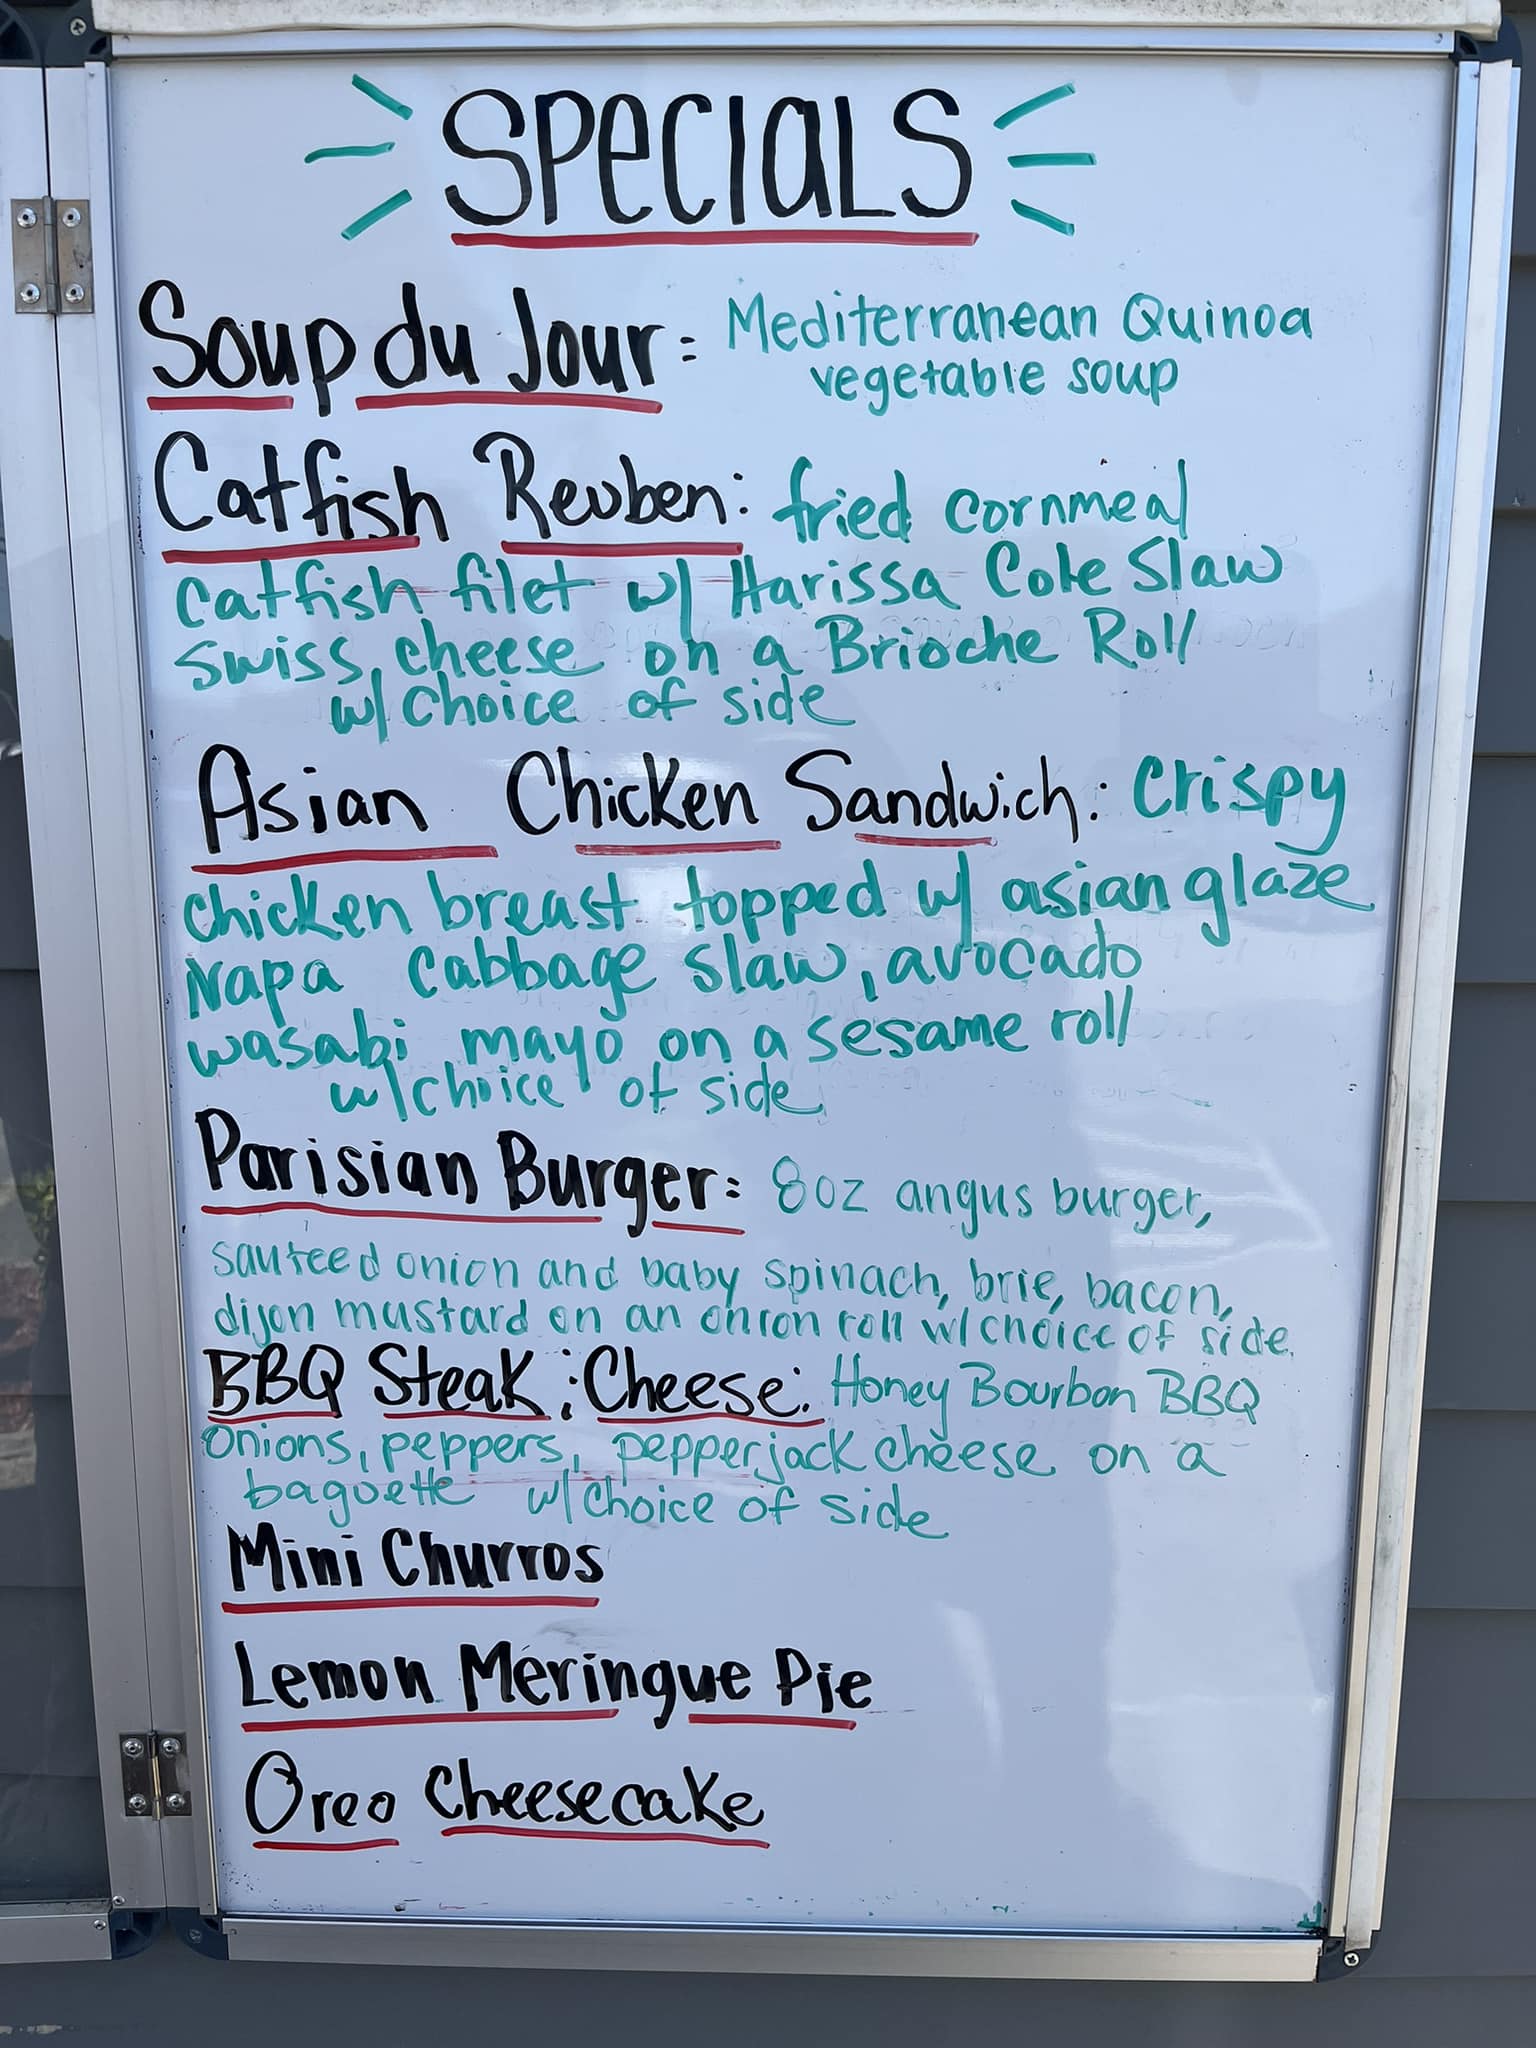 SPECIALS
Soup du Jour: Mediterranean Quinoa
vegetable soup
Catfish Reuben: fried cornmeal
catfish filet w/ Harissa Cole Slaw
swiss cheese on a Brioche Roll
w/ choice of side
Asian Chicken Sandwich: crispy
chicken breast topped w/ asian glaze
Napa cabbage slaw, avocado
wasabi mayo on a sesame roll
w/ choice of side
Parisian Burger: 8oz angus burger,
sauteed onion and baby spinach, brie, bacon,
dijon mustard on an onion roll w/ choice of side.
BBQ Steak ; Cheese: Honey Bourbon BBQ
onions, peppers, pepperjack cheese on a
baguette w/ choice of side
Mini Churros
Lemon Meringue Pie
Oreo Cheesecake